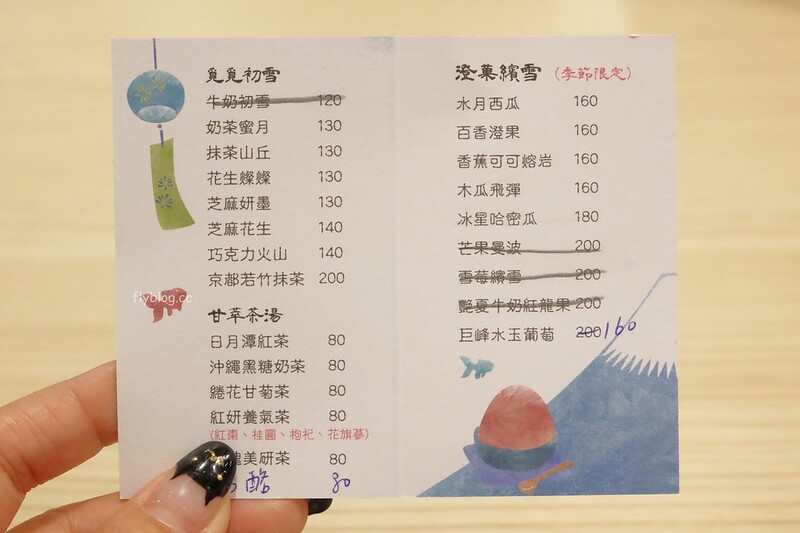 覓覓初雪
牛奶初雪 120
奶茶蜜月 130
抹茶山丘 130
花生燦燦 130
芝麻妍墨 130
芝麻花生 140
巧克力火山 140
京都若竹抹茶 200
flyblog.cc
甘萃茶湯
日月潭紅茶 80
沖繩黑糖奶茶 80
綣花甘菊茶 80
紅妍養氣茶 80
(紅棗、桂圓、枸杞、花旗蔘)
美研茶 80
酪 80
澄菓繽雪 (季節限定)
水月西瓜 160
百香澄果 160
香蕉可可熔岩 160
木瓜飛彈 160
冰星哈密瓜 180
芒果曼波 200
雪莓繽雪 200
艷夏牛奶紅龍果 200
巨峰水玉葡萄 200 160